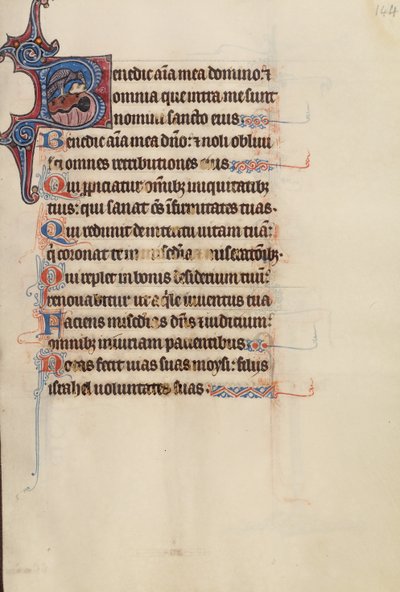 144
Benedic aīa mea domino: ⁊
omnia que intra me sunt
nomini sancto eius
Benedic aīa mea dn̄o: ⁊ noli obliui
sci omnes retributiones eius
Qui ꝓpiciatur om̄ibꝫ iniquitatibꝫ
tuis: qui sanat ōs īfirmitates tuas.
Qui redimit de interitu uitam tuā:
q̄ coronat te in mis̄dia ⁊ miseratōibꝫ.
Qui replet in bonis desiderium tuū:
renouabitur ut aq̄le iuuentus tua
Faciens mis̄cdias dn̄s ⁊ iudicium:
omnibꝫ iniuriam patientibus
Notas fecit uias suas moysi: filiis
israhel uoluntates suas.